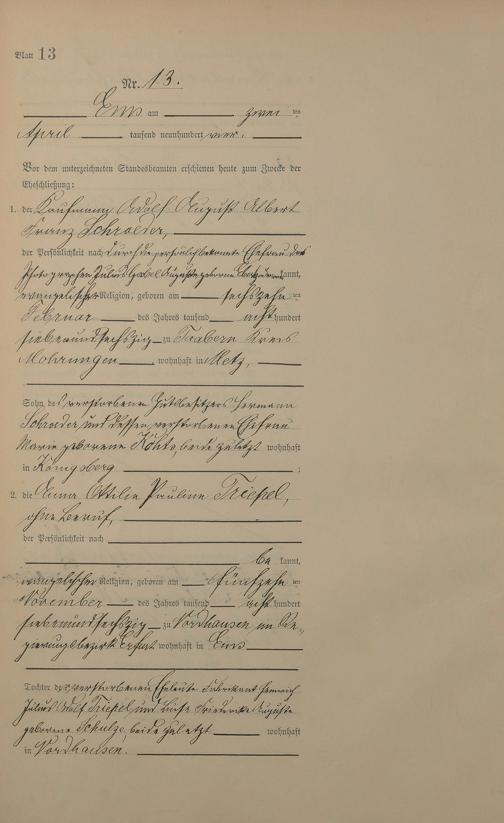 Blatt 13
Nr. 13.
Ems am zwei ten
April tausend neunhundert vier.
Vor dem unterzeichneten Standesbeamten erschienen heute zum Zwecke der
Eheschließung:
1. der Kaufmann Adolf August Albert
Franz Schroeder,
der Persönlichkeit nach durch die persönlich bekannte Ehefrau des
Photographen Julius Auguste geborene kannt,
evangelischer Religion, geboren am sechszehn ten
Februar des Jahres tausend acht hundert
siebenundsechszig zu Taabern Kreis
Mohrungen, wohnhaft in Metz,
Sohn des verstorbenen Gutsbesitzers Hermann
Schroeder und dessen verstorbenen Ehefrau
Marie geborene beide zuletzt wohnhaft
in Königsberg ;
2. die Anna Ottilie Pauline Triepel,
ohne Beruf,
der Persönlichkeit nach
be kannt,
evangelischer Religion, geboren am fünfzehn ten
November des Jahres tausend acht hundert
siebenundsechszig zu Nordhausen im Re-
gierungsbezirk Erfurt wohnhaft in Ems
Tochter der verstorbenen Eheleute Fabrikant Heinrich
Julius Adolf Triepel und Luise Friederike Auguste
geborene Schulze, beide zuletzt wohnhaft
in Nordhausen.